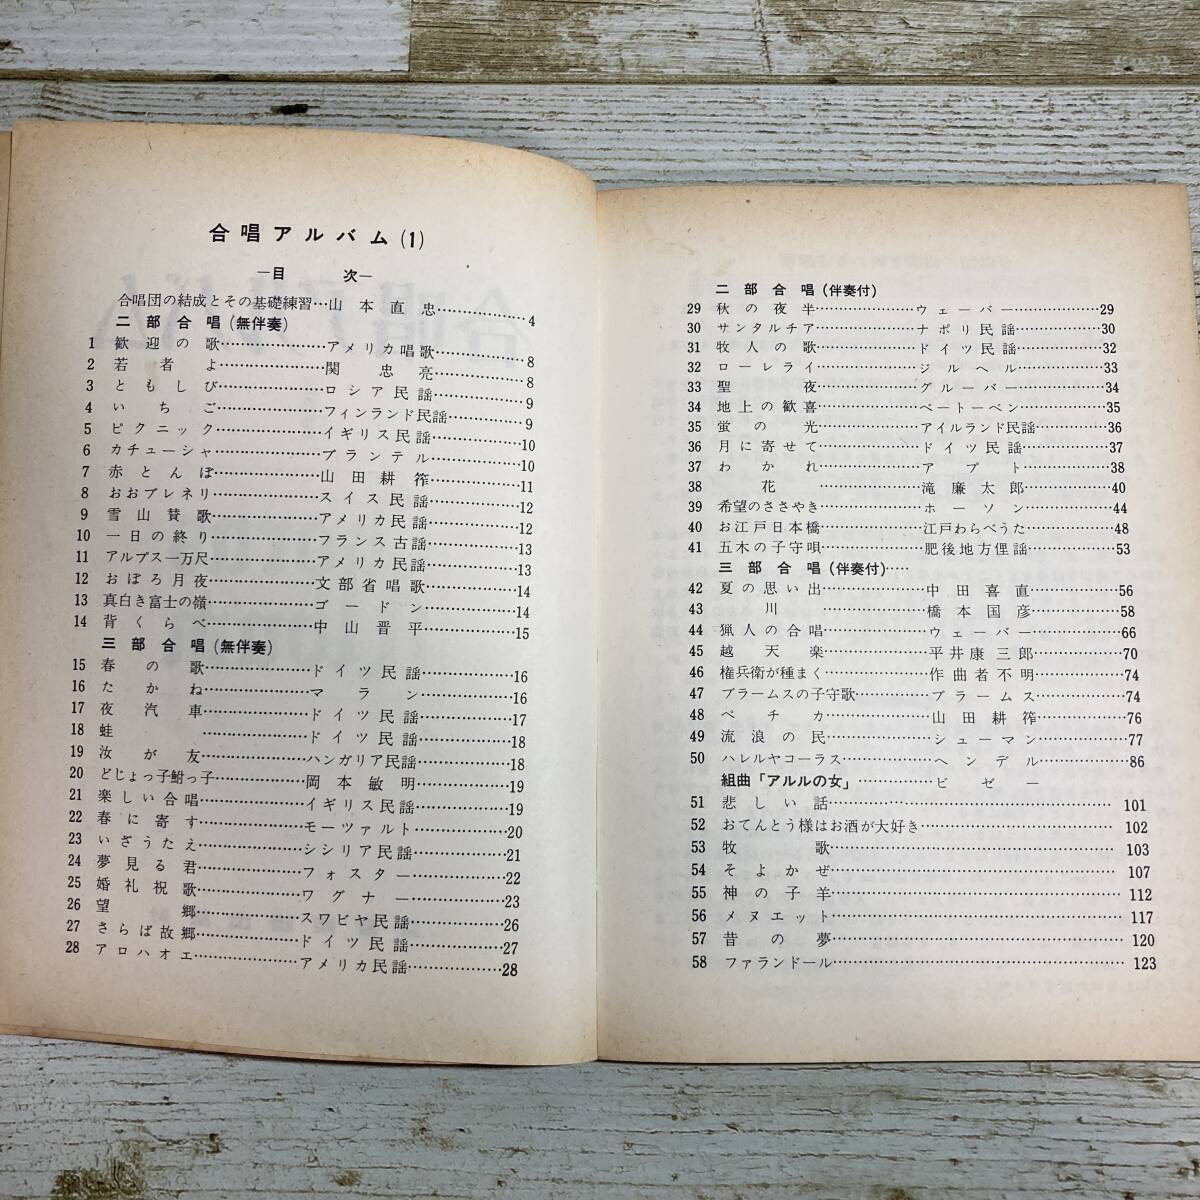 合唱アルバム(1)
―目　次―
合唱団の結成とその基礎練習…山本直忠………………4
二部合唱(無伴奏)
1 歓迎の歌………………アメリカ唱歌………………8
2 若者よ………………関忠亮………………8
3 ともしび………………ロシア民謡………………9
4 いちご………………フィンランド民謡………………9
5 ピクニック………………イギリス民謡………………10
6 カチューシャ………………ブランテル………………10
7 赤とんぼ………………山田耕筰………………11
8 おおブレネリ………………スイス民謡………………12
9 雪山賛歌………………アメリカ民謡………………12
10 一日の終り………………フランス古謡………………13
11 アルプス一万尺………………アメリカ民謡………………13
12 おぼろ月夜………………文部省唱歌………………14
13 真白き富士の嶺………………ゴードン………………14
14 背くらべ………………中山晋平………………15
三部合唱(無伴奏)
15 春の歌………………ドイツ民謡………………16
16 たかね………………マラン………………16
17 夜汽車………………ドイツ民謡………………17
18 蛙………………ドイツ民謡………………18
19 汝が友………………ハンガリア民謡………………18
20 どじょっ子鮒っ子………………岡本敏明………………19
21 楽しい合唱………………イギリス民謡………………19
22 春に寄す………………モーツァルト………………20
23 いざうたえ………………シシリア民謡………………21
24 夢見る君………………フォスター………………22
25 婚礼祝歌………………ワグナー………………23
26 望郷………………スワビヤ民謡………………26
27 さらば故郷………………ドイツ民謡………………27
28 アロハオエ………………アメリカ民謡………………28
二部合唱(伴奏付)
29 秋の夜半………………ウェーバー………………29
30 サンタルチア………………ナポリ民謡………………30
31 牧人の歌………………ドイツ民謡………………32
32 ローレライ………………ジルヘル………………33
33 聖夜………………グルーバー………………34
34 地上の歓喜………………ベートーベン………………35
35 蛍の光………………アイルランド民謡………………36
36 月に寄せて………………ドイツ民謡………………37
37 わかれ………………アプト………………38
38 花………………滝廉太郎………………40
39 希望のささやき………………ホーソン………………44
40 お江戸日本橋………………江戸わらべうた………………48
41 五木の子守唄………………肥後地方俚謡………………53
三部合唱(伴奏付)……
42 夏の思い出………………中田喜直………………56
43 川………………橋本国彦………………58
44 猟人の合唱………………ウェーバー………………66
45 越天楽………………平井康三郎………………70
46 権兵衛が種まく………………作曲者不明………………74
47 ブラームスの子守歌………………ブラームス………………74
48 ペチカ………………山田耕筰………………76
49 流浪の民………………シューマン………………77
50 ハレルヤコーラス………………ヘンデル………………86
組曲「アルルの女」………………ビゼー
51 悲しい話………………101
52 おてんとう様はお酒が大好き………………102
53 牧歌………………103
54 そよかぜ………………107
55 神の子羊………………112
56 メヌエット………………117
57 昔の夢………………120
58 ファランドール………………123